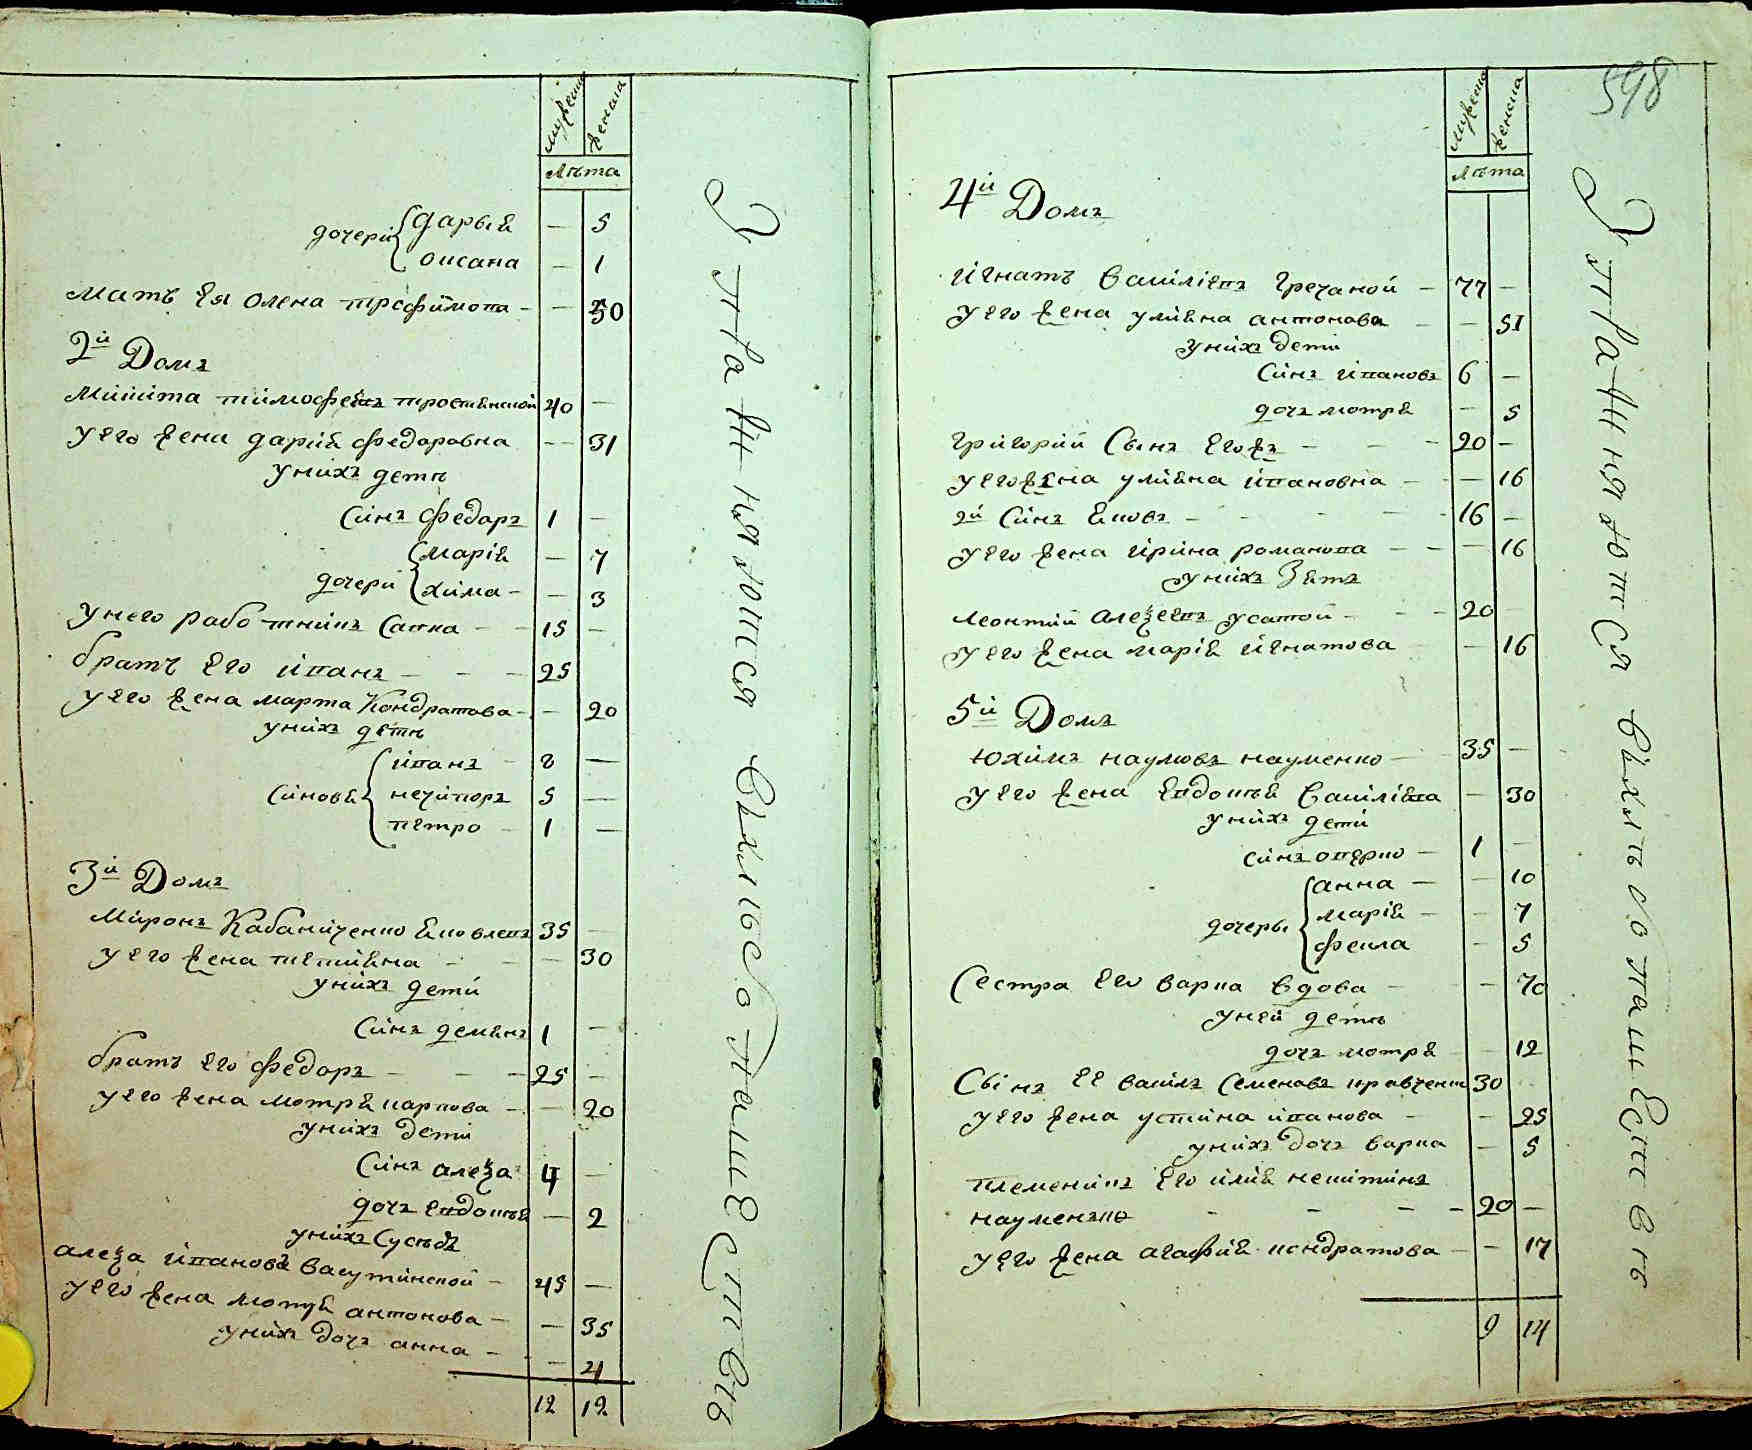 мужеска женска
лѣта
дочери дарья — 5
оксана — 1
мать Ея олена трофимова — — 50
2й Домъ
микита тимофеевъ тростянской 40 —
у его жена дария федоровна — 31
у нихъ дети
Синъ федоръ 1 —
дочери мария — 7
хима — — 3
У него работникъ Савка — 15 —
братъ Его иванъ — — — 25
у его жена марта Кондратова — — 20
у нихъ дети
синовя иванъ — 8 —
нечипоръ 5 —
петро — 1 —
3й Домъ
Миронъ Кабаниченко яковлевъ 35 —
у его жена татияна — — — 30
у нихъ дети
Синъ демянъ 1 —
братъ Его федоръ — — — 25 —
у его жена мотря карпова — — 20
у нихъ дети
Синъ алекса 4 —
дочъ евдокия — 2
у нихъ Сусѣдъ
алекса ивановъ Васутинской — 45 —
у его жена мотря антонова — — 35
у нихъ дочъ анна — — 4
12 12
Упражняются вхлѣбопашествѣ
598
мужеска женска
лѣта
4й Домъ
игнатъ василіевъ гречаной — 77 —
у его жена улияна антонова — — 51
у нихъ дети
Синъ иванъ 6 —
дочъ мотря — 5
григорий Сынъ Егожъ — — — 20 —
у его жена улияна ивановна — — 16
2й Синъ яковъ — — — — 16 —
у его жена ирина романова — — — 16
у нихъ Зять
леонтий алексеевъ усатой — — — 20 —
у его жена мария игнатова — — 16
5й Домъ
юхимъ наумовъ науменко — 35 —
у его жена Евдокия василиева — 30
у нихъ дети
синъ оверко — 1 —
дочеры анна — — 10
мария — — 7
фекла — 5
Сестра Его варка вдова — — 70
у ней дети
дочъ мотря — 12
Сынъ Ее василъ Семеновъ кравченко 30
у его жена устина иванова — — 25
у нихъ дочъ варка — 5
племеникъ Его илия никитинъ
науменко — — — — 20 —
у его жена агафия кондратова — — 17
9 14
Упражняются вхлѣбопашествѣ